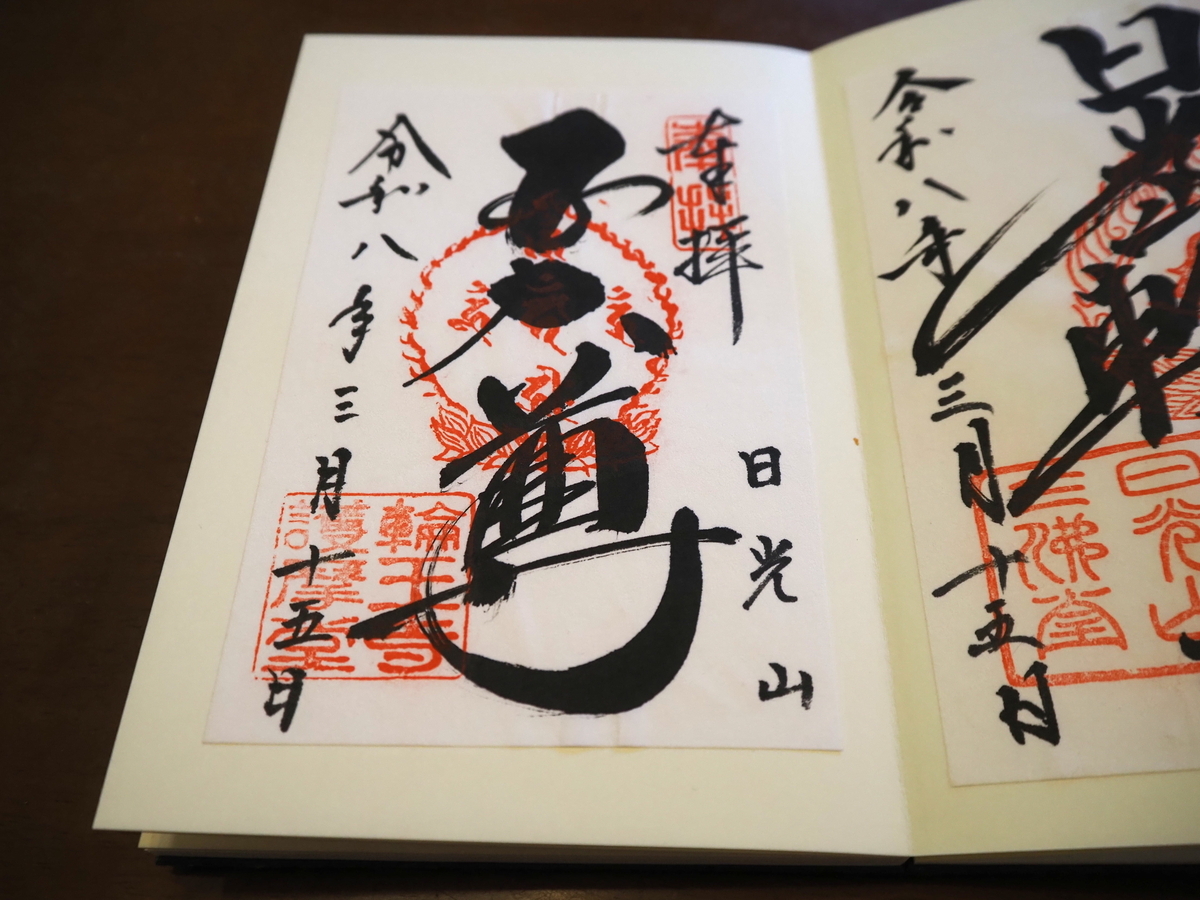 日光山
三佛堂
令和八年三月十五日
奉拝
日光山
五大尊
輪王寺
護摩堂
令和八年三月十五日